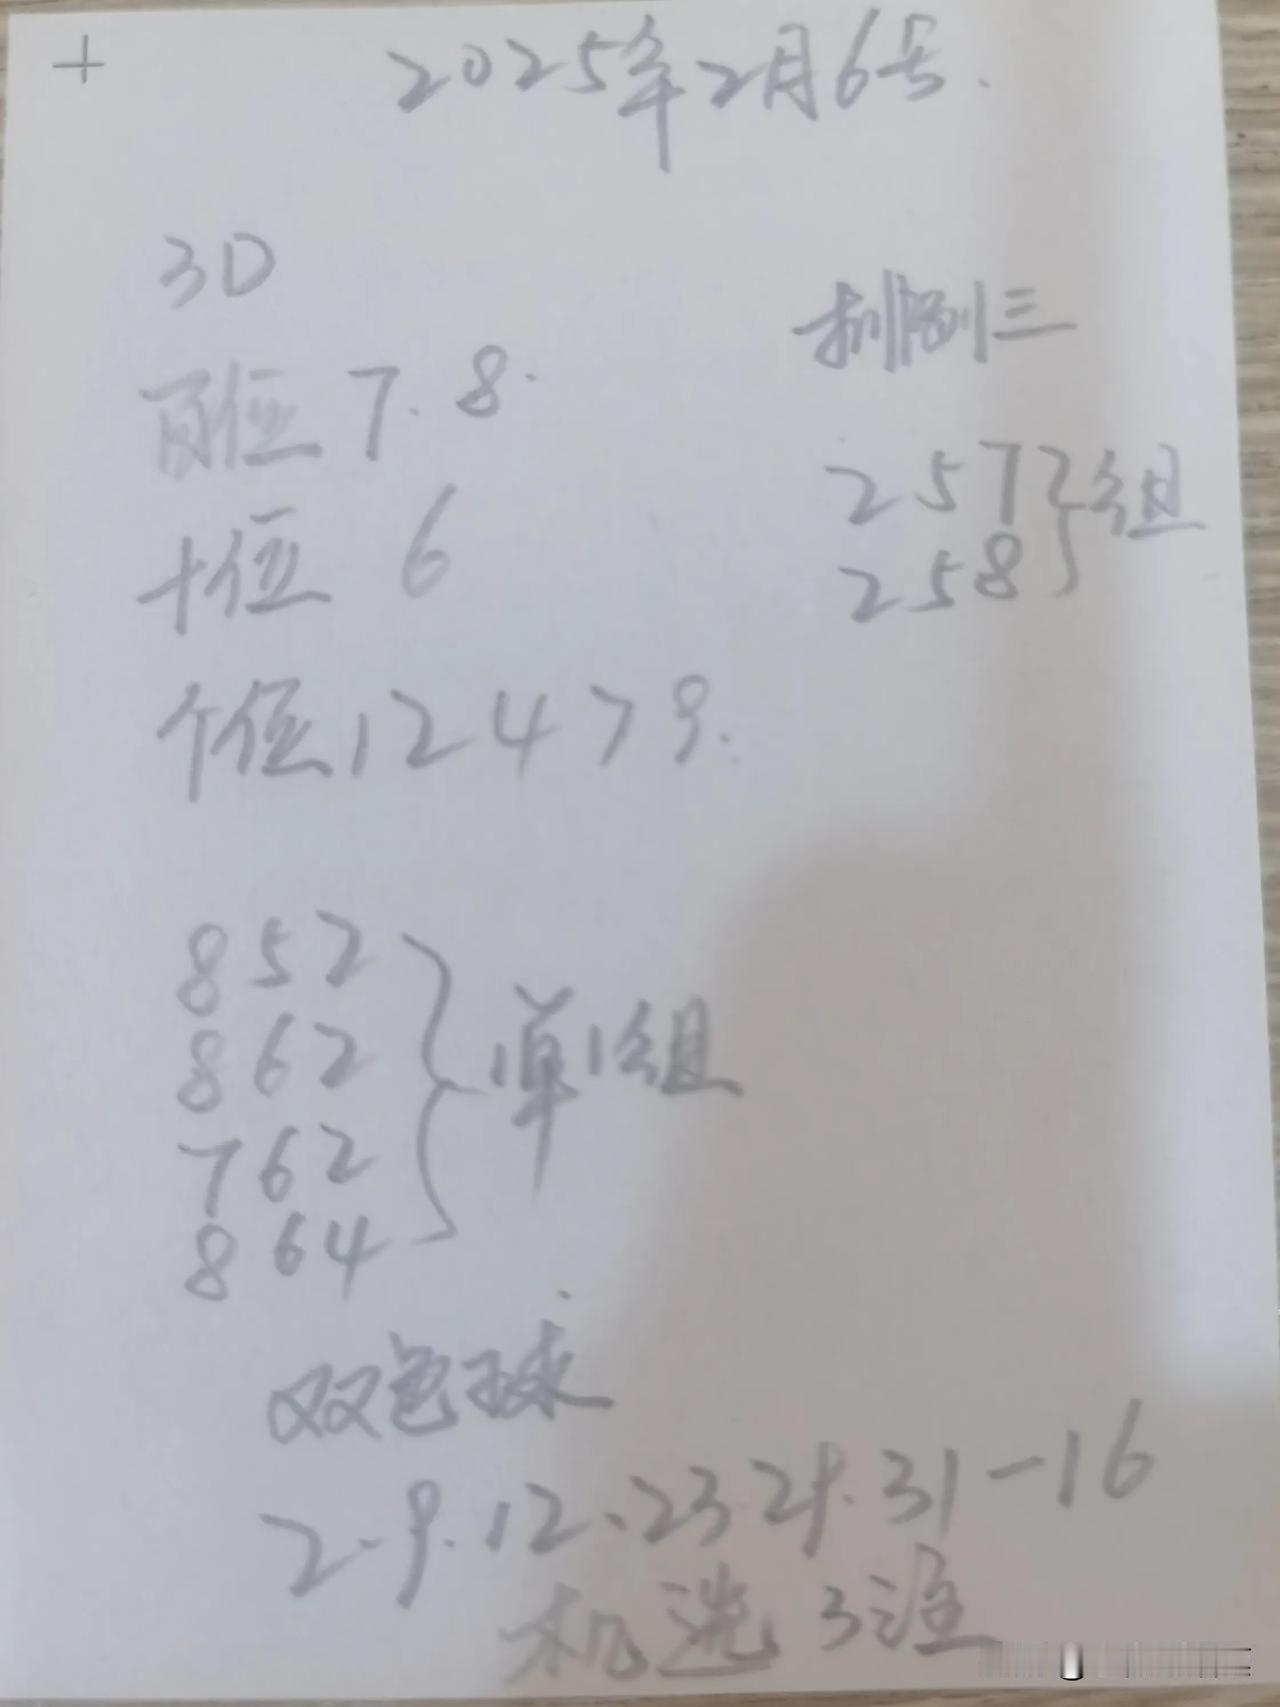 2025年2月6号.
3D
百位 7. 8.
十位 6
个位 1 2 4 7 9.
排列三
2 5 7
2 5 8
组
8 5 2
8 6 2
7 6 2
8 6 4
单1组
双色球
2.9.12.23 29.31-16
机选 3注